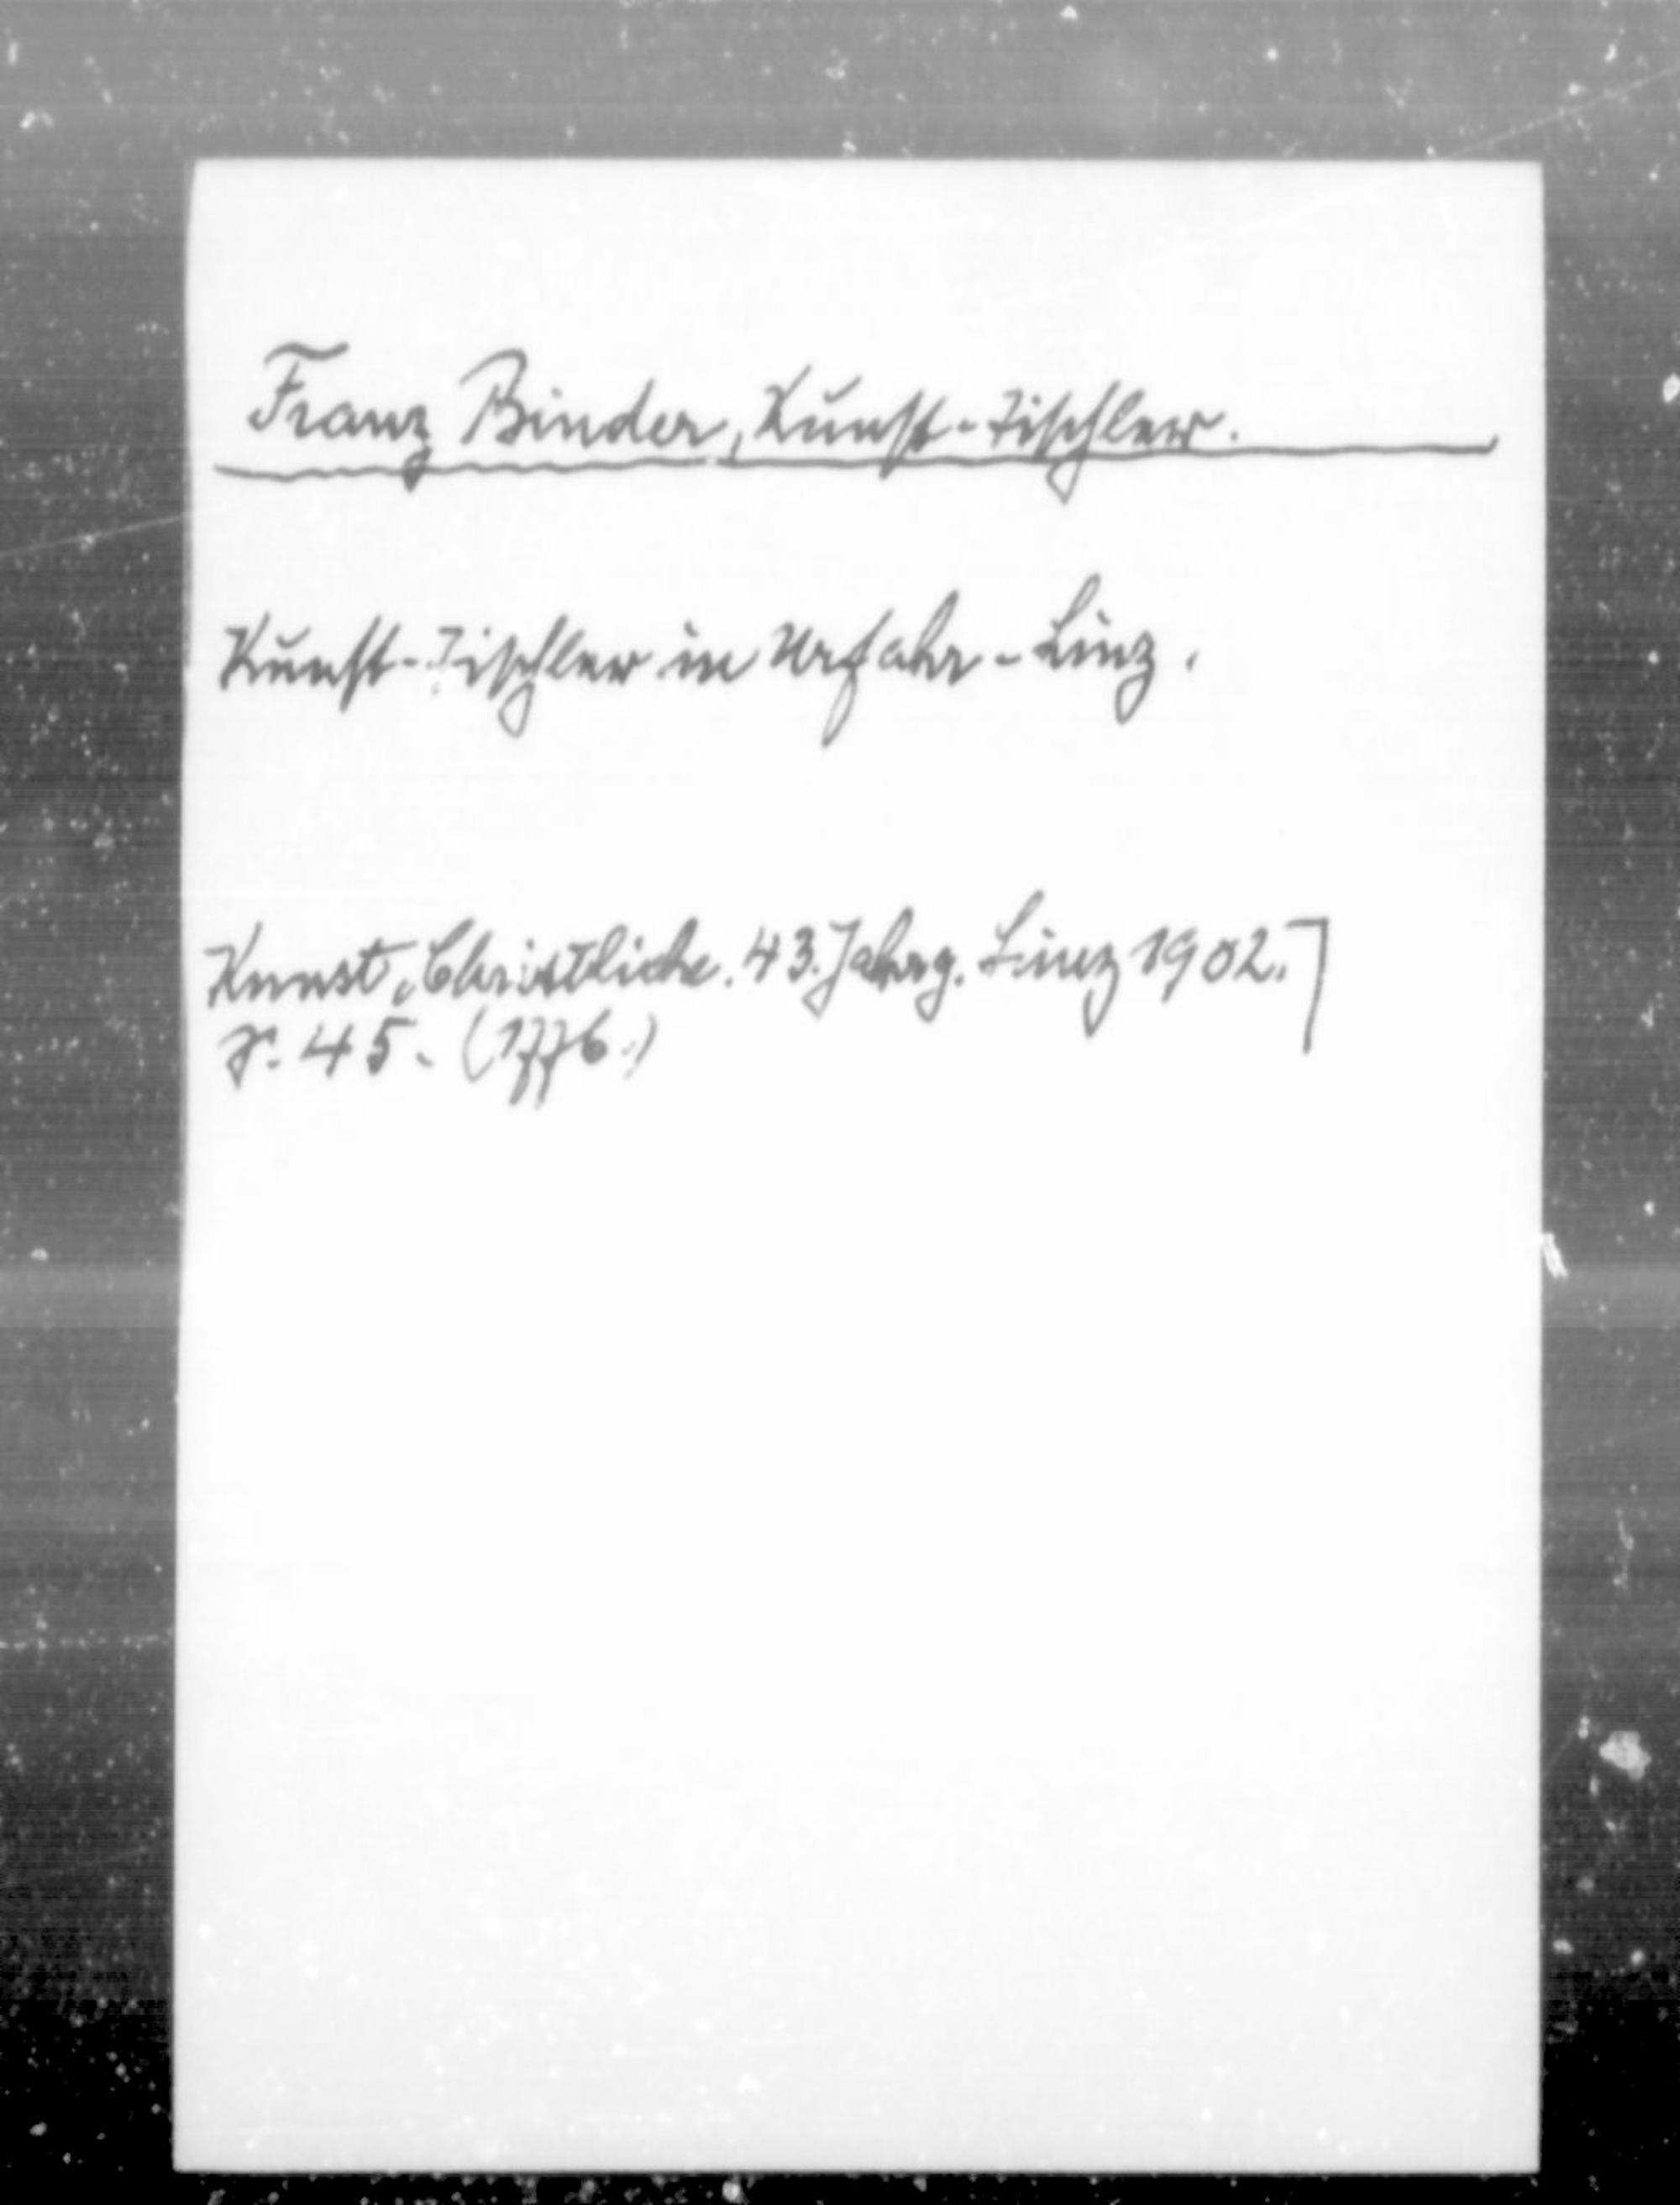 Franz Binder, Kunst-Tischler.
Kunst-Tischler in Urfahr-Linz.
Kunst, Christliche. 43. Jahrg. Linz 1902.]
S. 45. (1776.)